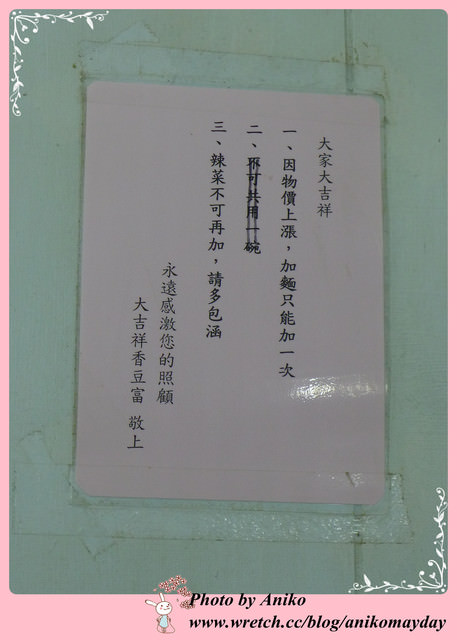 大家大吉祥
一、因物價上漲，加麵只能加一次
二、不可共用一碗
三、辣菜不可再加，請多包涵
永遠感激您的照顧
大吉祥香豆富 敬上
Photo by Aniko
www.wretch.cc/blog/anikomayday